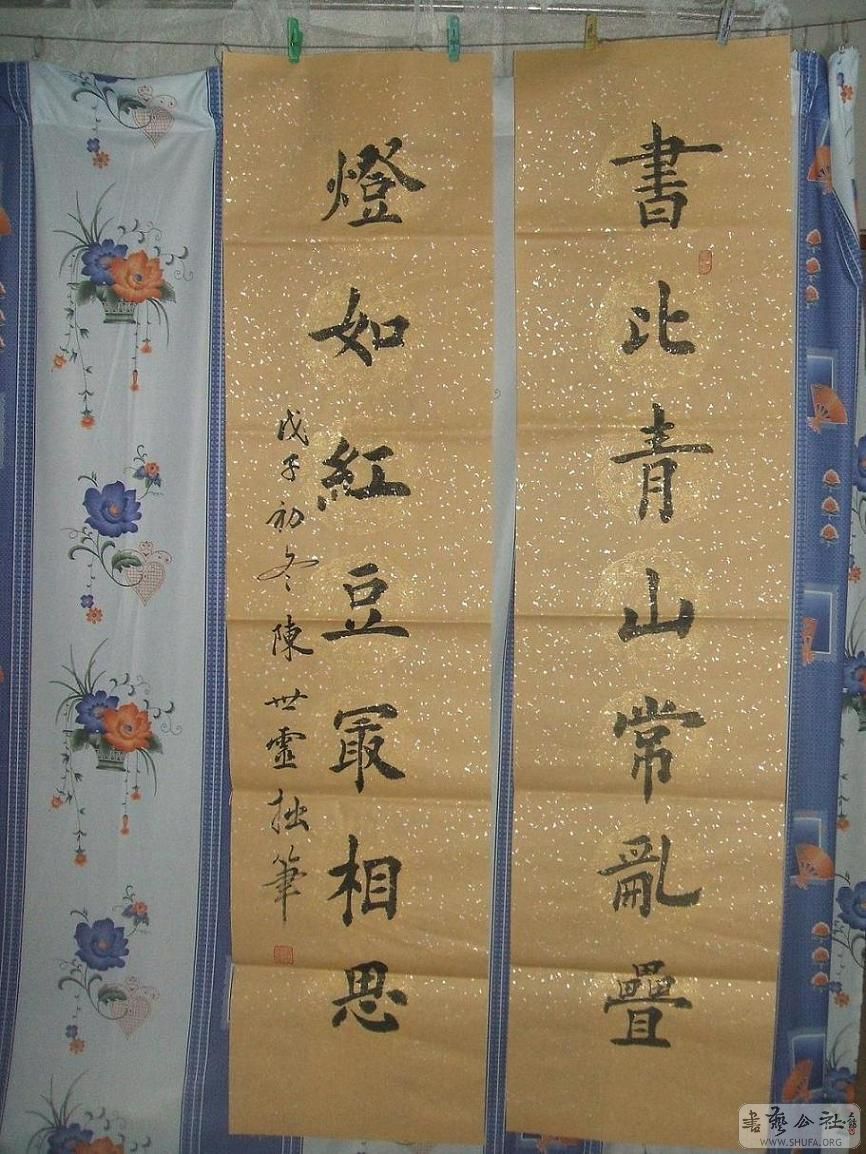 書比青山常亂疊
燈如紅豆最相思
戊子初冬陳世靈拙筆
書藝公社
WWW.SHUFA.ORG